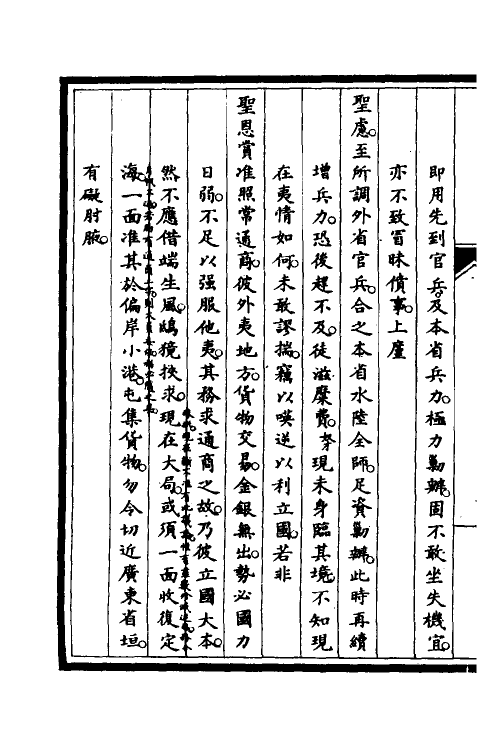 即用先到官兵。及本省兵力。極力勦辦。固不敢坐失機宜。
亦不致冒昧僨事。上廑
聖慮。至所調外省官兵。合之本省水陸全師。足資勦辦。此時再續
增兵力。恐後趕不及。徒滋糜費。琴現未身臨其境。不知現
在夷情如何。未敢謬揣。竊以嘆逆以利立國。若非
聖恩賞准照常通商。彼外夷地方。貨物交易。金銀無出。勢必國力
日弱。不足以强服他夷。其務求通商之故。乃彼立國大本。
然不應借端生風。鴟獍挾求。現在大局。或須一面收復定
海。一面准其於偏岸小港。屯集貨物。勿令切近廣東省垣。
有礙肘腋。